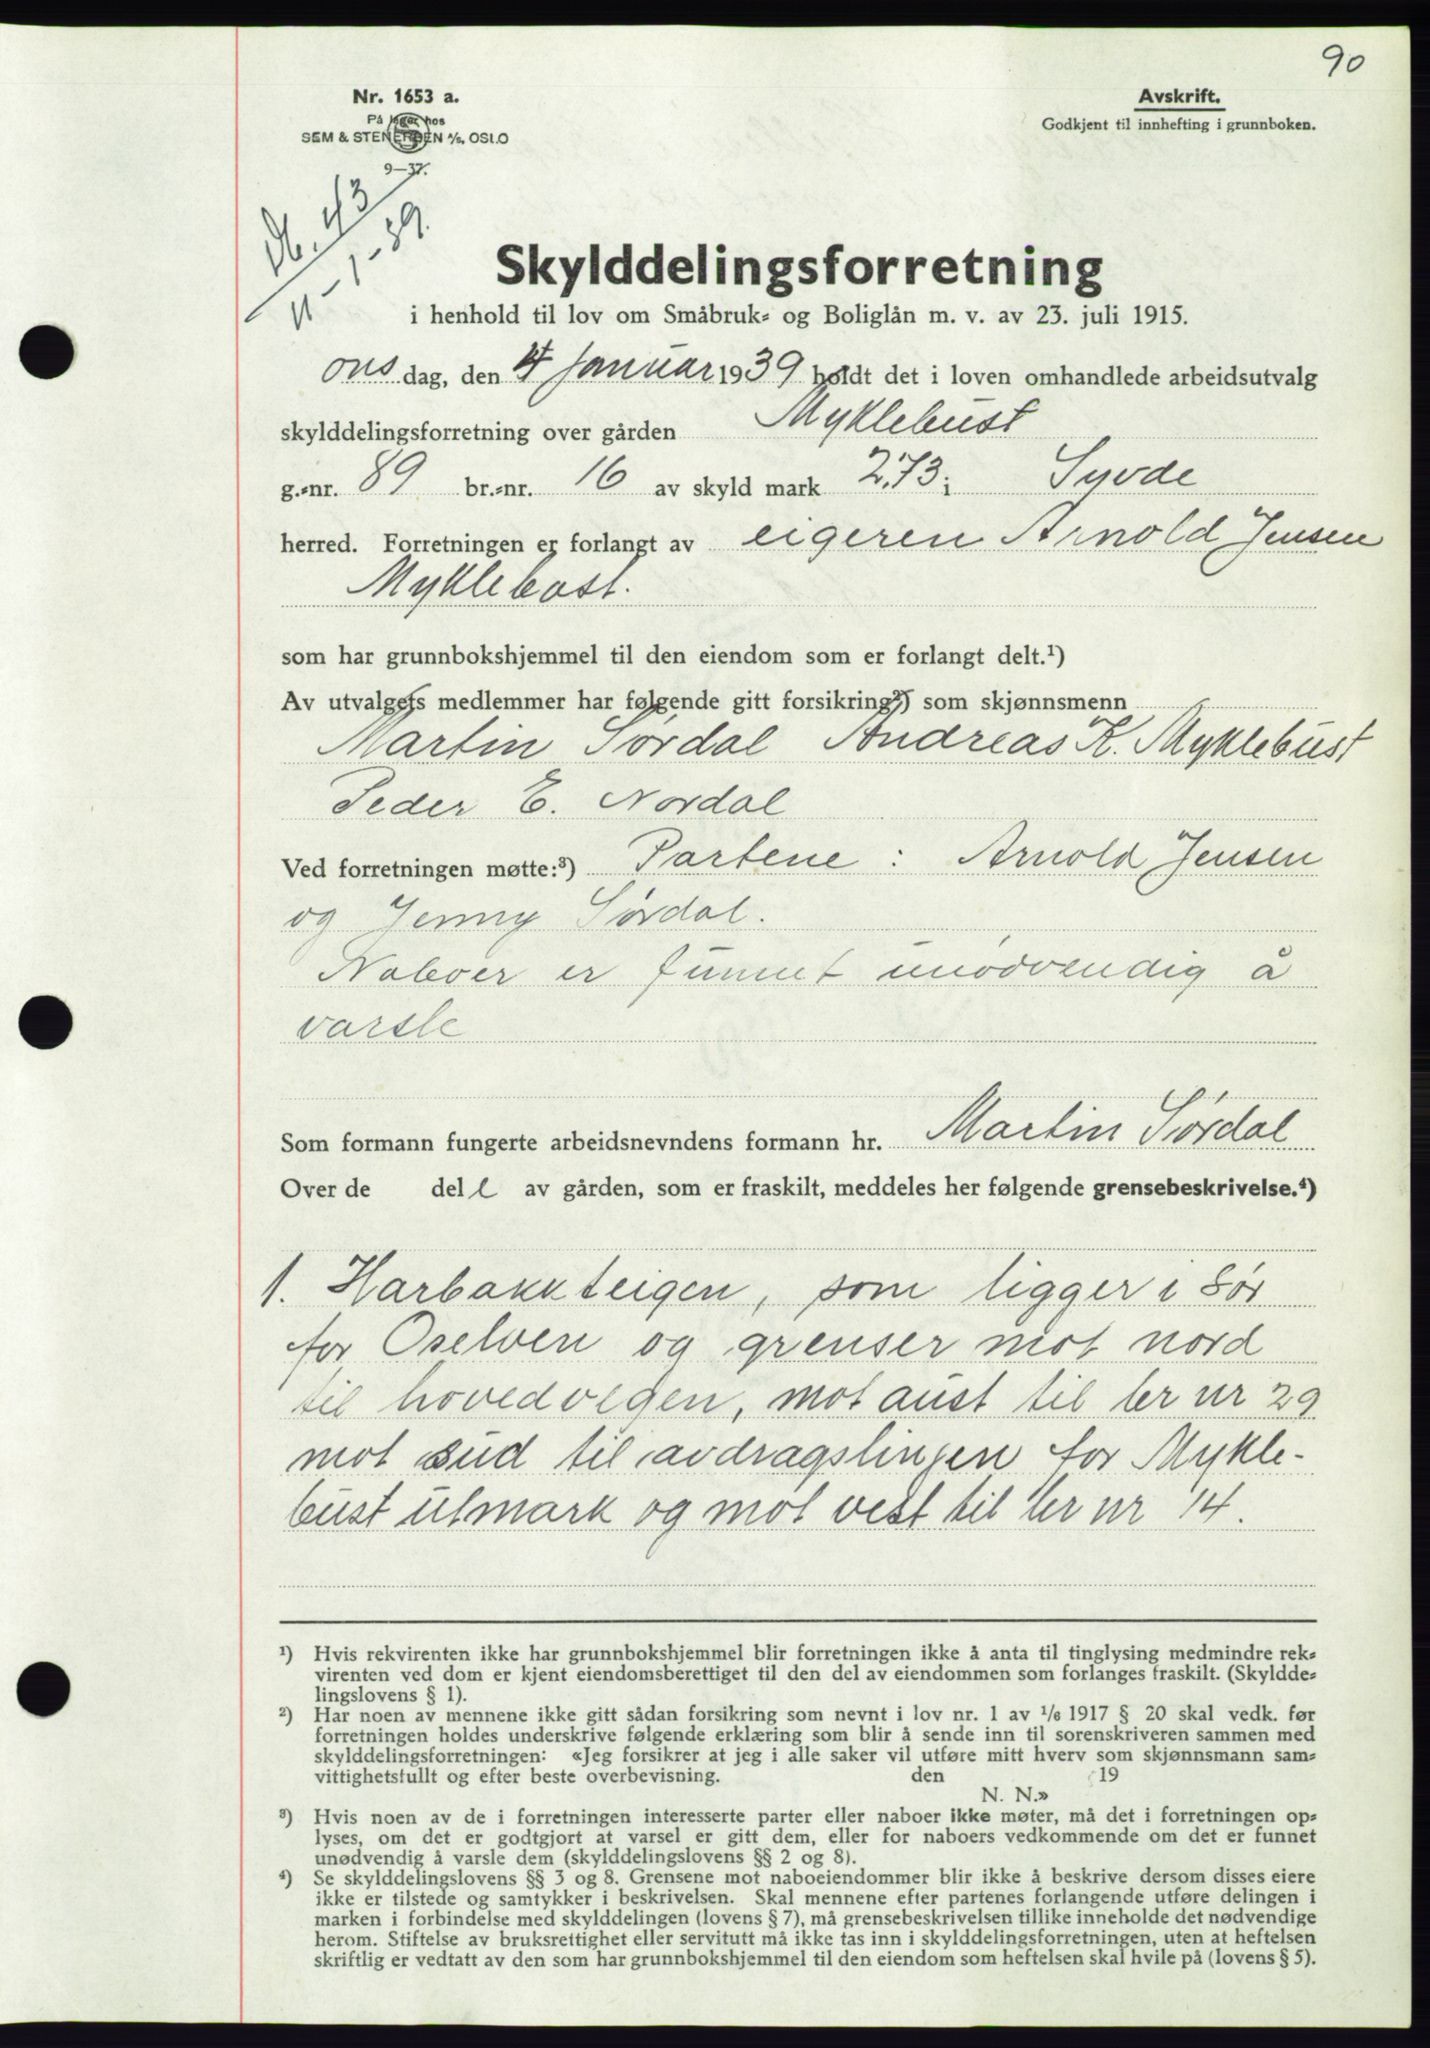 90
Nr. 1653 a.
På lager hos
SEM & STENERSEN A/S, OSLO
9—37.
Avskrift.
Godkjent til innhefting i grunnboken.
Db. 43
11-1-39.
Skylddelingsforretning
i henhold til lov om Småbruk- og Boliglån m. v. av 23. juli 1915.
ons dag, den 4 januar 1939 holdt det i loven omhandlede arbeidsutvalg
skylddelingsforretning over gården Myklebust
g.-nr. 89 br.-nr. 16 av skyld mark 2,73 i Syvde
herred. Forretningen er forlangt av eigeren Arnold Jensen
Myklebost.
som har grunnbokshjemmel til den eiendom som er forlangt delt.¹)
Av utvalgets medlemmer har følgende gitt forsikring²) som skjønnsmenn
Martin Sørdal Andreas K. Myklebust
Peder E. Nordal
Ved forretningen møtte:³) Partene : Arnold Jensen
og Jenny Sørdal.
Naboer er funnet unødvendig å
varsle
Som formann fungerte arbeidsnevndens formann hr. Martin Sørdal
Over de del l av gården, som er fraskilt, meddeles her følgende grensebeskrivelse.⁴)
1. Harbakkteigen, som ligger i sør
for Oselven og grenser mot nord
til hovedvegen, mot aust til br nr 29
mot sud til avdragslinjen for Mykle-
bust utmark og mot vest til br nr 14.
¹) Hvis rekvirenten ikke har grunnbokshjemmel blir forretningen ikke å anta til tinglysing medmindre rek-
virenten ved dom er kjent eiendomsberettiget til den del av eiendommen som forlanges fraskilt. (Skyldde-
lingslovens § 1).
²) Har noen av mennene ikke gitt sådan forsikring som nevnt i lov nr. 1 av 1/6 1917 § 20 skal vedk. før
forretningen holdes underskrive følgende erklæring som blir å sende inn til sorenskriveren sammen med
skylddelingsforretningen: «Jeg forsikrer at jeg i alle saker vil utføre mitt hverv som skjønnsmann sam-
vittighetsfullt og efter beste overbevisning. den 19
N. N.»
³) Hvis noen av de i forretningen interesserte parter eller naboer ikke møter, må det i forretningen op-
lyses, om det er godtgjort at varsel er gitt dem, eller for naboers vedkommende om det er funnet
unødvendig å varsle dem (skylddelingslovens §§ 2 og 8).
⁴) Se skylddelingslovens §§ 3 og 8. Grensene mot naboeiendommer blir ikke å beskrive dersom disses eiere
ikke er tilstede og samtykker i beskrivelsen. Skal mennene efter partenes forlangende utføre delingen i
marken i forbindelse med skylddelingen (lovens § 7), må grensebeskrivelsen tillike inneholde det nødvendige
herom. Stiftelse av bruksrettighet eller servitutt må ikke tas inn i skylddelingsforretningen, uten at heftelsen
skriftlig er vedtatt av den som har grunnbokshjemmel til den eiendom som heftelsen skal hvile på (lovens § 5).